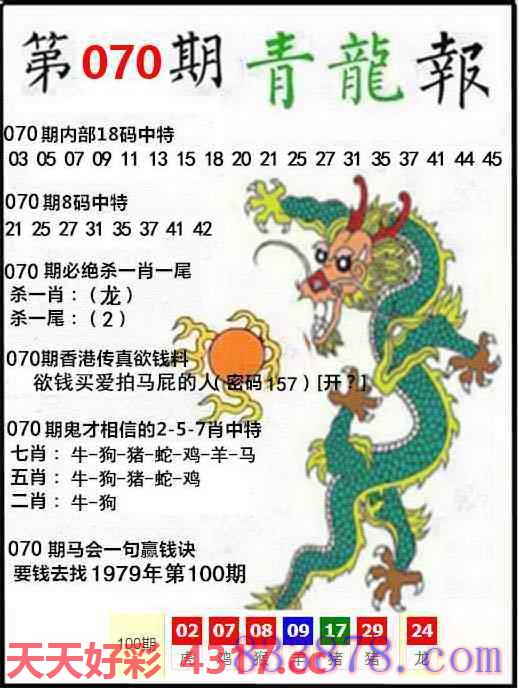 第070期青龍報
070期内部18码中特
03 05 07 09 11 13 15 18 20 21 25 27 31 35 37 41 44 45
070期8码中特
21 25 27 31 35 37 41 42
070期必绝杀一肖一尾
杀一肖：（龙）
杀一尾：（2）
070期香港传真欲钱料
欲钱买爱拍马屁的人(密码157)[开？]
070期鬼才相信的2-5-7肖中特
七肖：牛-狗-猪-蛇-鸡-羊-马
五肖：牛-狗-猪-蛇-鸡
二肖：牛-狗
070期马会一句赢钱诀
要钱去找1979年第100期
100期 02 07 08 09 17 29 24
虎 鸡 猴 羊 猪 猪 龙
天天好彩 4387.cc